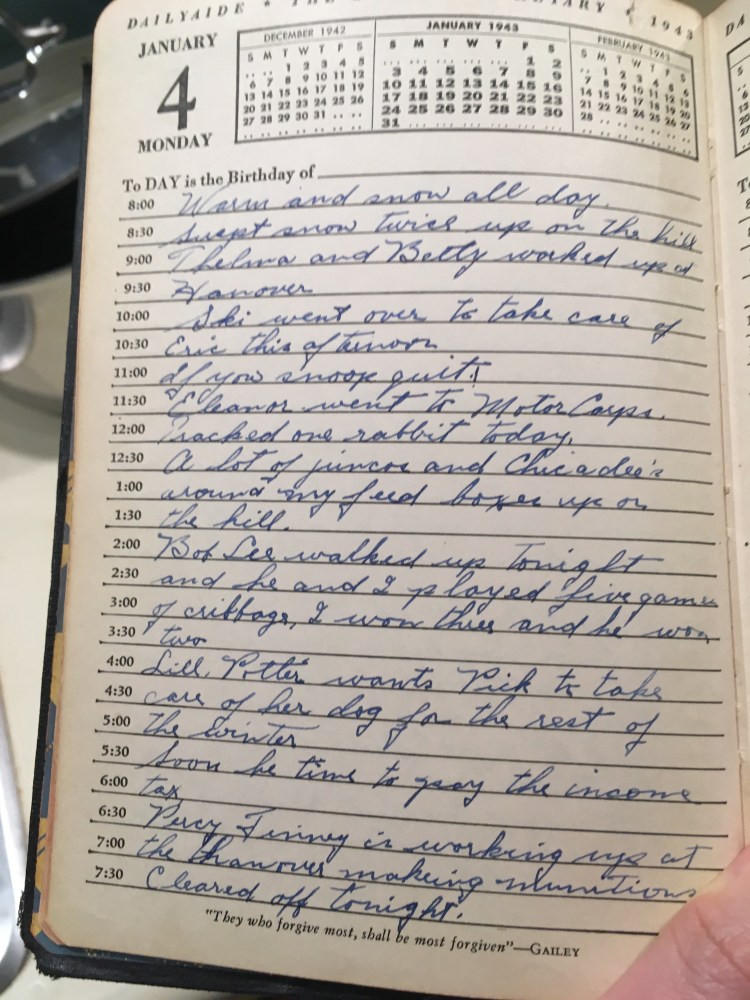 DAILYAIDE * THE 1943
JANUARY
4
MONDAY
DECEMBER 1942
S M T W T F S
.. .. 1 2 3 4 5
6 7 8 9 10 11 12
13 14 15 16 17 18 19
20 21 22 23 24 25 26
27 28 29 30 31 .. ..
JANUARY 1943
S M T W T F S
... ... ... ... ... 1 2
3 4 5 6 7 8 9
10 11 12 13 14 15 16
17 18 19 20 21 22 23
24 25 26 27 28 29 30
31 ... ... ... ... ... ...
FEBRUARY 1943
S M T W T F S
.. 1 2 3 4 5 6
7 8 9 10 11 12 13
14 15 16 17 18 19 20
21 22 23 24 25 26 27
28 .. .. .. .. .. ..
To DAY is the Birthday of
8:00 Warm and snow all day.
8:30 Swept snow twice up on the hill
9:00 Thelma and Betty worked up at
9:30 Hanover
10:00 Ski went over to take care of
10:30 Eric this afternoon
11:00 If you snoop quit!
11:30 Eleanor went to Motor Corps.
12:00 Tracked one rabbit today.
12:30 A lot of juncos and Chicadee's
1:00 around my feed boxes up on
1:30 the hill.
2:00 Bob Lee walked up tonight
2:30 and he and I played five games
3:00 of cribbage, I won three and he won
3:30 two
4:00 Lill Potter wants Pick to take
4:30 care of her dog for the rest of
5:00 the winter
5:30 Soon be time to pay the income
6:00 tax
6:30 Percy Finney is working up at
7:00 the Hanover making munitions
7:30 Cleared off tonight.
"They who forgive most, shall be most forgiven"—GAILEY